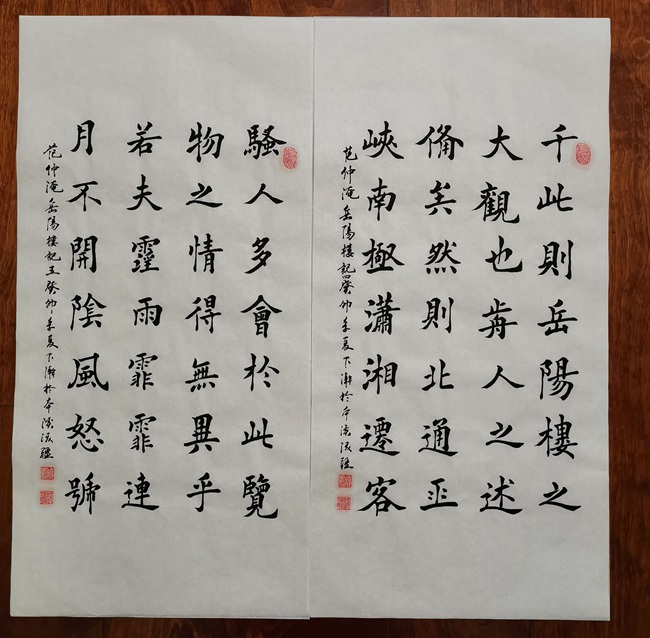 千此則岳陽樓之
大觀也歬人之述
俻矣然則北通巫
峽南極瀟湘遷客
范仲淹岳陽樓記四癸卯季夏下澣於本溪
騷人多會於此覽
物之情得無異乎
若夫霪雨霏霏連
月不開陰風怒號
范仲淹岳陽樓記五癸卯季夏下澣於本溪